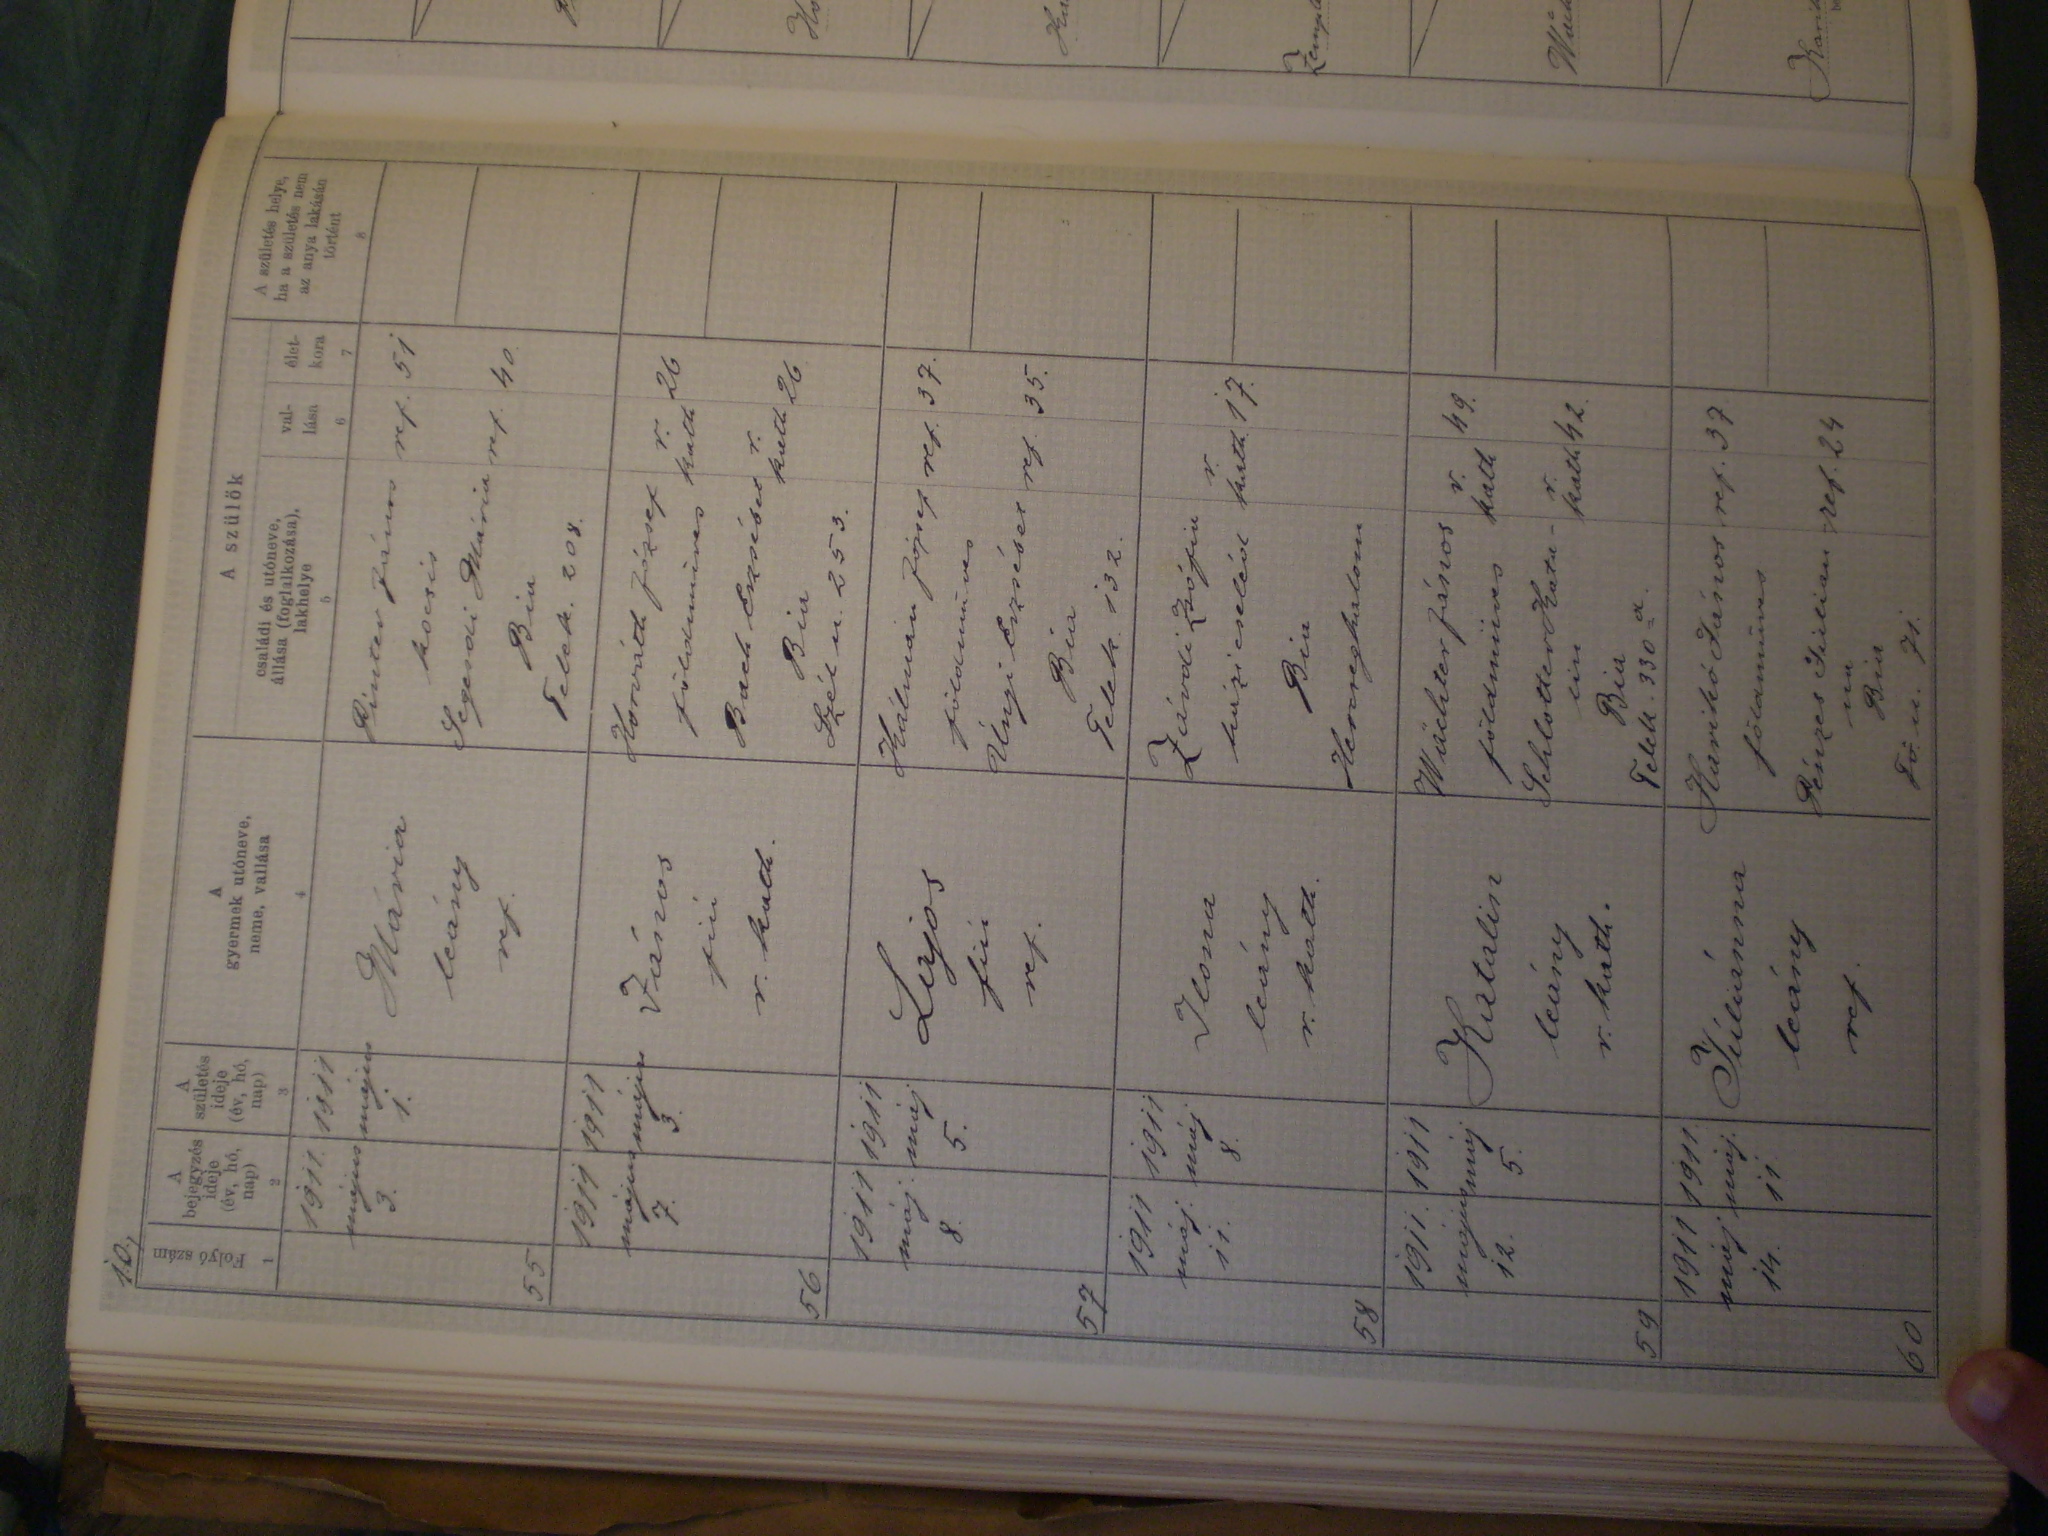 10.
Folyó szám
A
bejegyzés
ideje
(év, hó,
nap)
A
születés
ideje
(év, hó,
nap)
A
gyermek utóneve,
neme, vallása
A szülők
családi és utóneve,
állása (foglalkozása),
lakhelye
val-
lása
élet-
kora
A születés helye,
ha a születés nem
az anya lakásán
történt
1
2
3
4
5
6
7
8
55
1911.
május
3.
1911
május
1.
Mária
leány
ref.
Pinter János ref. 51
kocsis
Segesdi Mária ref. 40.
Bia
Telek. 208.
56
1911
május
7.
1911
május
3.
János
fiú
r. kath.
Horváth József r. 26
földműves kath
Bach Erzsébet r.
kath 26
Bia
Szél u. 253.
57
1911
máj.
8.
1911
máj
5.
Lajos
fiú
ref.
Kálmán József ref. 37.
földműves
Úngi Erzsébet ref. 35.
Bia
Telek. 132.
58
1911
máj.
11.
1911
máj
8.
Ilona
leány
r. kath.
Závodi Zsófia r.
házicseléd kath. 17.
Bia
Herceghalom
59
1911.
május
12.
1911
máj
5.
Katalin
leány
r. kath.
Wächter János r. 49.
földmüves kath
Schlotter Kata- r.
lin kath 42.
Bia
Telek. 330 a.
60
1911
máj
14.
1911.
máj.
11.
Júliánna
leány
ref.
Karikó János ref. 37
földmüves
Pénzes Julian ref. 24
na
Bia
Fő. u. 71.